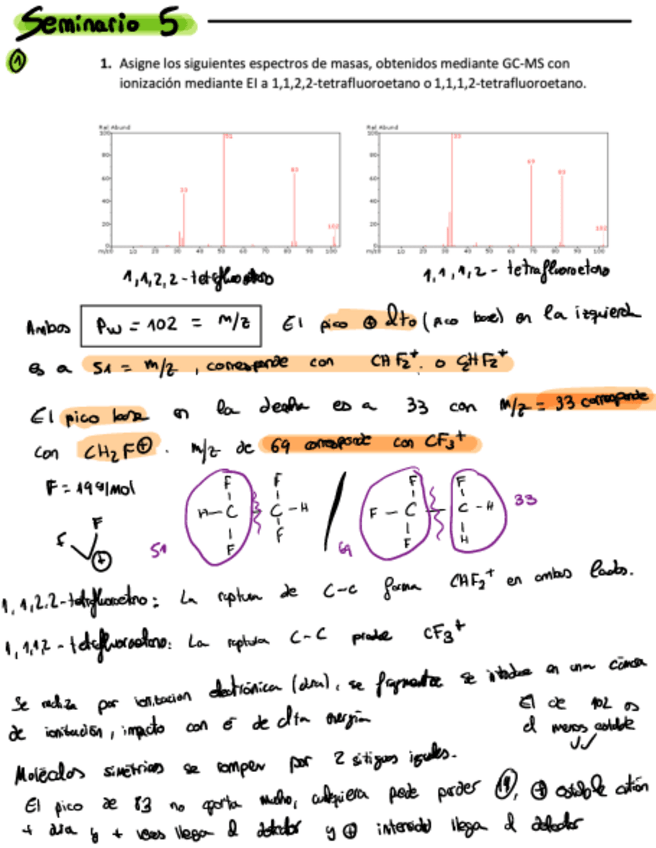 Seminario 5
①
1. Asigne los siguientes espectros de masas, obtenidos mediante GC-MS con
ionización mediante EI a 1,1,2,2-tetrafluoroetano o 1,1,1,2-tetrafluoroetano.
Rel Abund
100
80
60
40
20
0
51
83
33
102
m/z
10 20 30 40 50 60 70 80 90 100
Rel Abund
100
80
60
40
20
0
33
69
83
102
m/z
10 20 30 40 50 60 70 80 90 100
1,1,2,2-
1,1,1,2 - tetrafluoroetano
Ambos Pw = 102 = m/z El pico ⊕ alto (pico base) en la izquierda
es a 51 = m/z, corresponde con CHF₂⁺. o
El pico base en la es a 33 con m/z = 33 corresponde
con CH₂F⊕. m/z de 69 corresponde con CF₃⁺
F = 19 g/mol
F F
H - C - C - H
F F
51
F F
F - C - C - H
F H
69
33
F F
⊕
1,1,2,2- La ruptura de C-C forma CHF₂⁺ en ambos lados.
1,1,1,2 - La ruptura C-C produce CF₃⁺
Se realiza por ionización electrónica (dura), se se introduce en una cámara
de ionización, impacto con ē de alta energía
El de 102 es
el menos estable
Moléculas simétricas se rompen por 2 sitios iguales.
El pico de 83 no aporta mucho, cualquiera puede perder 19, ⊕ estable catión
+ dura y + veces llega al detector y ⊕ intensidad llega al detector